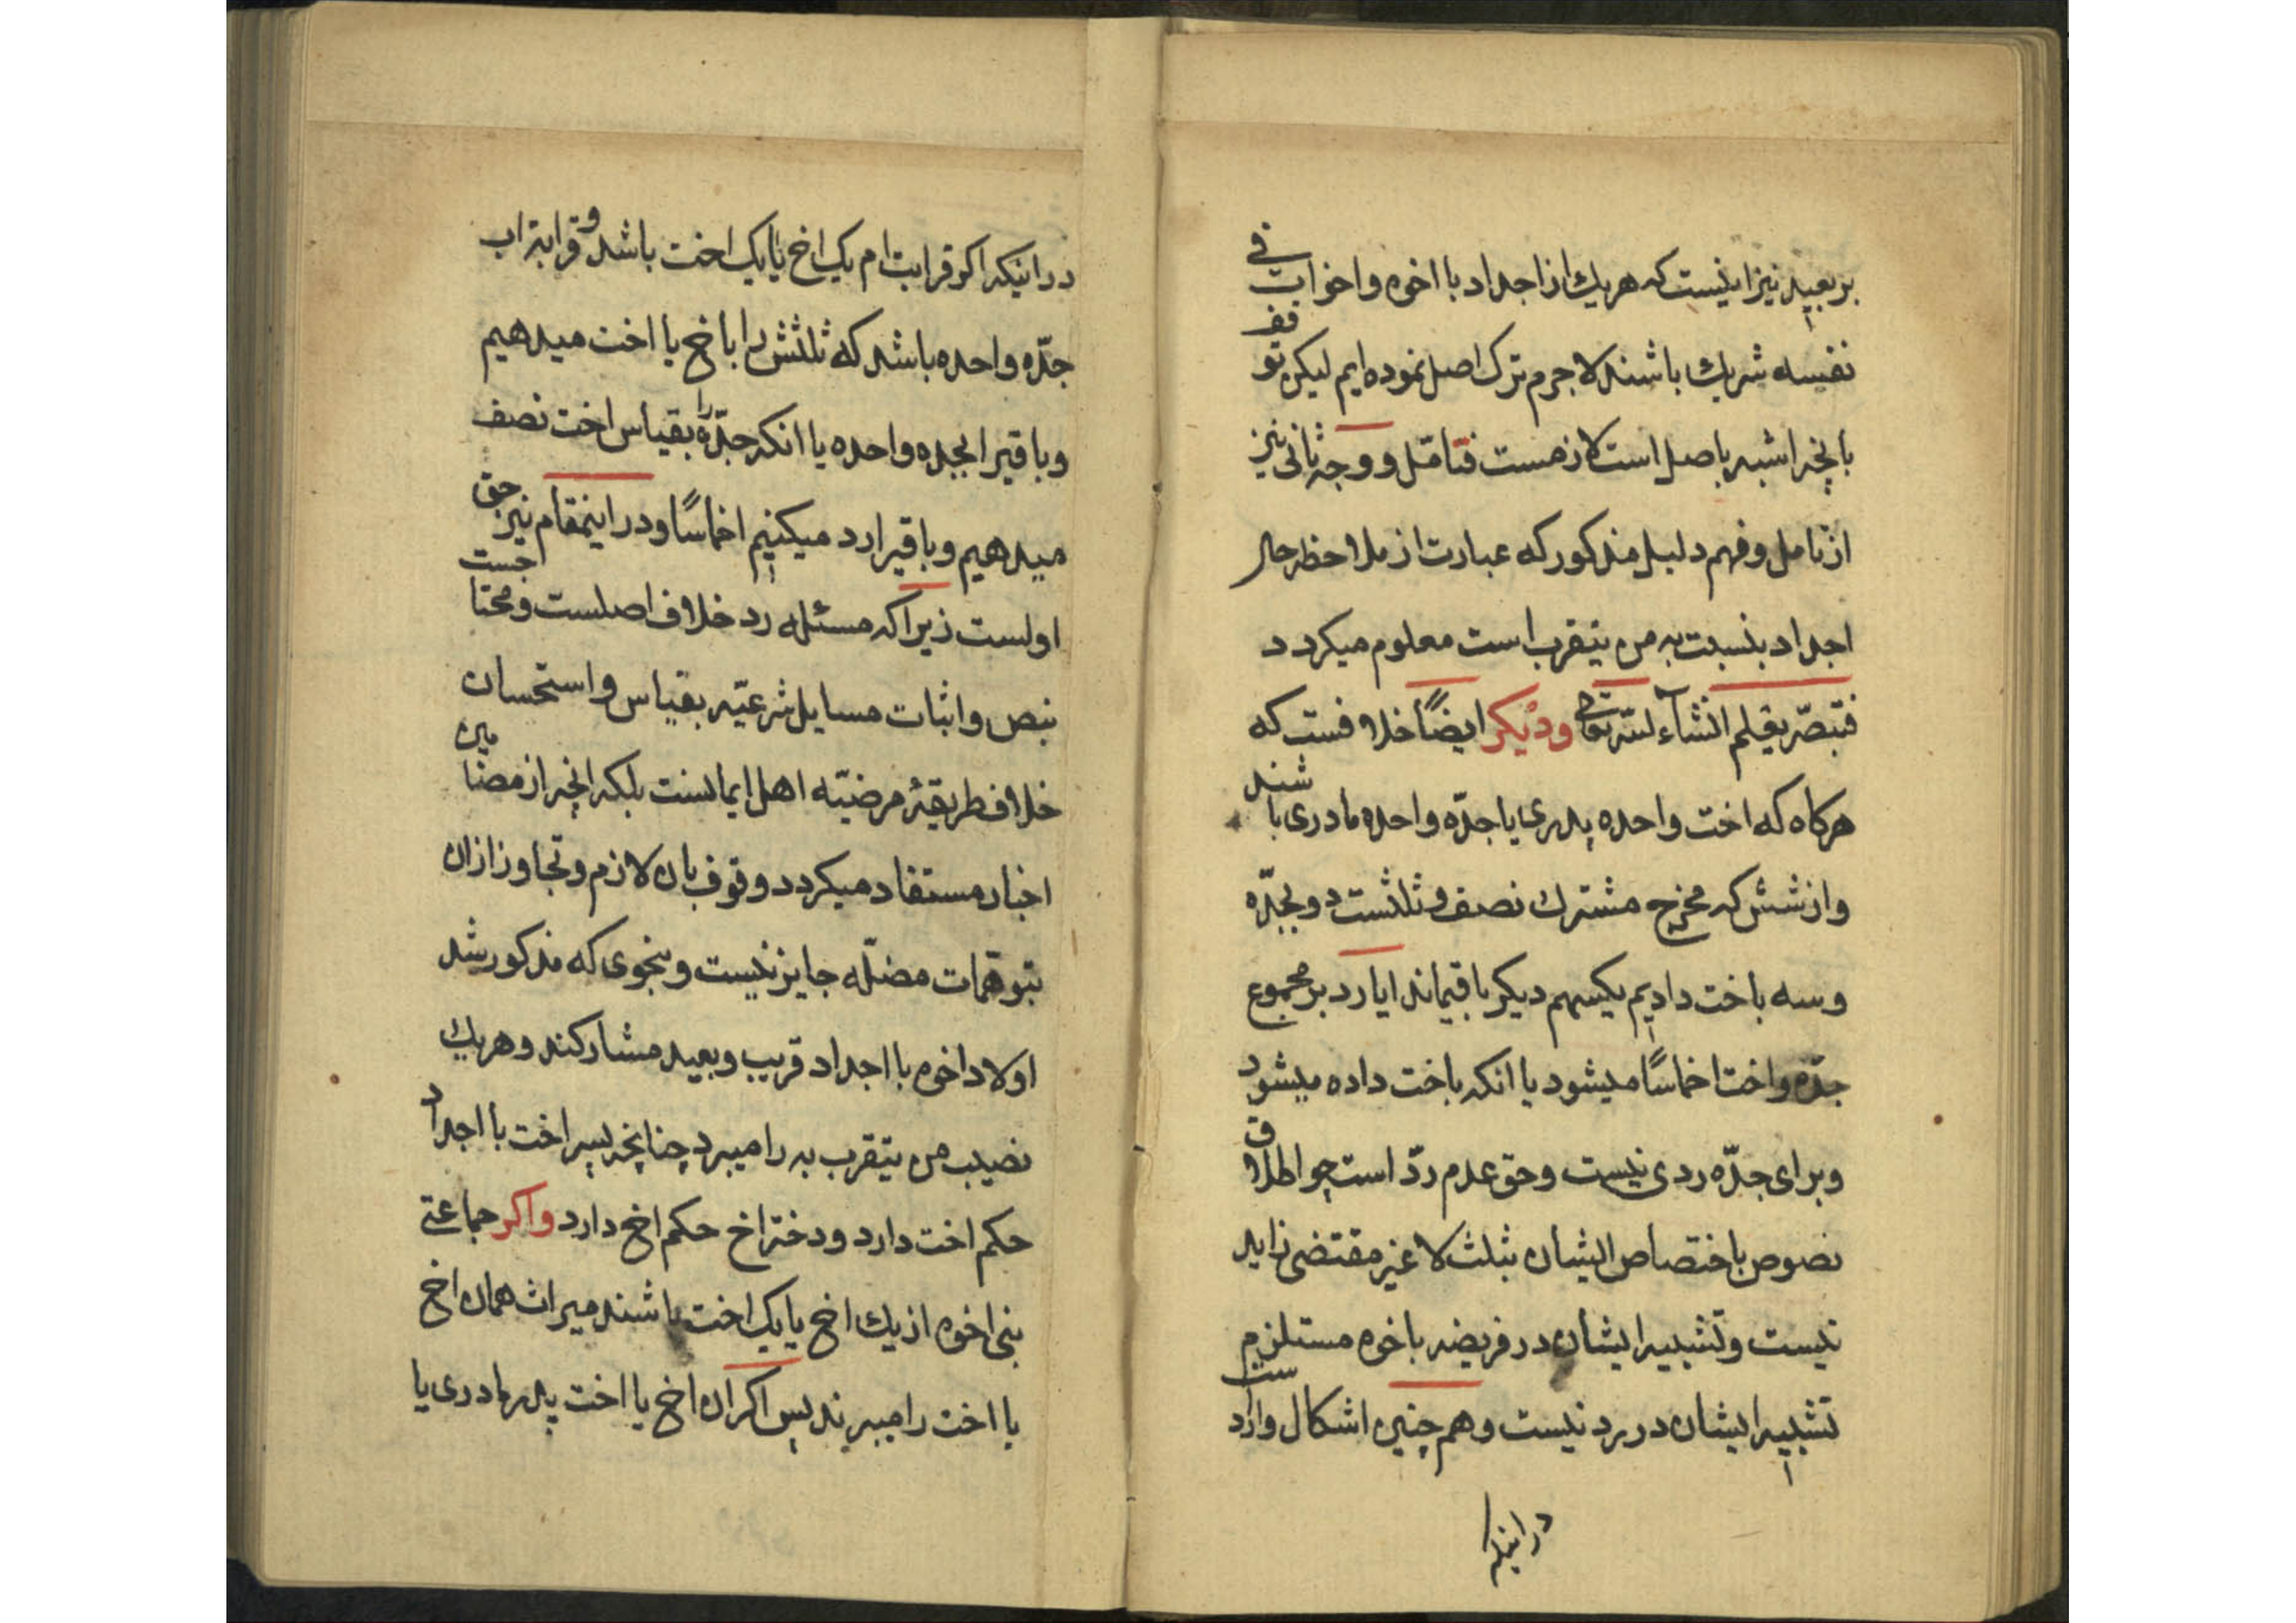 بر بعید نیز اینست که هریک از اجداد با اخوه و اخوات فی
نفسه شریک باشند لاجرم ترک اصل نموده ایم لیکن توقف
بانچه اشبه باصل است لازمست فتامّل و وجه ثانی نیز
از تامل و فهم دلیل مذکور که عبارت از ملاحظه حال
اجداد بنسبت به من یتقرب است معلوم میکردد
فتبصّر یقلم انشآء لله تعالی ودیکر ایضاً خلافست که
هرکاه که اخت واحده پدری یا جدّه واحده مادری باشند
واز شش که مخرج مشترک نصف و ثلثست دو بجدّه
وسه باخت دادیم یکسهم دیکر باقیماند ایا رد بر مجموع
جدّه واخت اخماسًا میشود یا انکه باخت داده میشود
وبرای جدّه ردی نیست وحق عدم ردّ است چو اطلاق
نصوص باختصاص ایشان بثلث لا غیر مقتضی زاید
نیست وتشبیه ایشان در فریضه باخوه مستلزم
تشبیه ایشان در رد نیست وهم چنین اشکال واردست
در اینکه
در اینکه اکر قرابت ام یک اخ یا یک اخت باشد و قرابة اب
جدّه واحده باشد که ثلثش را باخ یا اخت میدهیم
وباقیرا بجده واحده یا انکه جدّه را بقیاس اخت نصف
میدهیم وباقیرا رد میکنیم اخماسًا ودر اینمقام نیز حق
اولست زیرا که مسئله رد خلاف اصلست ومحتاجست
بنص واثبات مسایل شرعیّه بقیاس واستحسان
خلاف طریقهٔ مرضیّه اهل ایمانست بلکه انچه از مضامین
اخبار مستفاد میکردد وقوف بان لازم وتجاوز ازان
بتوهّمات مضلّه جایز نیست وبنحوی که مذکور شد
اولاد اخوه با اجداد قریب وبعید مشارکند وهریک
نصیب من یتقرب به را میبرد چنانچه پسر اخت با اجداد
حکم اخت دارد ودختر اخ حکم اخ دارد واکر جماعتی
بنی اخوه از یک اخ یا یک اخت باشند میراث همان اخ
یا اخت را میبرند پس اکر ان اخ یا اخت پدر مادری یا